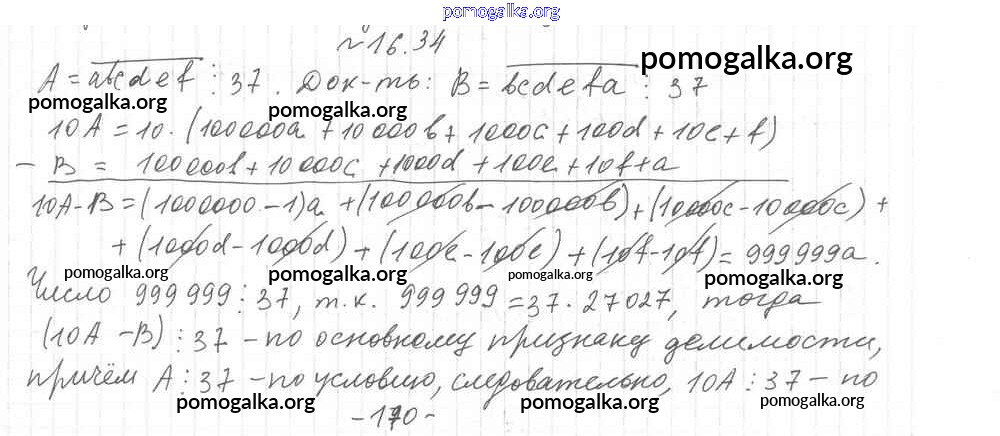 pomogalka.org
№16.34
pomogalka.org
A = abcdef ⋮ 37. Док-ть: B = bcdefa ⋮ 37
pomogalka.org pomogalka.org pomogalka.org
10A = 10·(100000a + 10000b + 1000c + 100d + 10e + f)
− B = 100000b + 10000c + 1000d + 100e + 10f + a
10A − B = (1000000 − 1)a + (100000b − 100000b) + (10000c − 10000c) +
+ (1000d − 1000d) + (100e − 100e) + (10f − 10f) = 999999a.
pomogalka.org pomogalka.org pomogalka.org pomogalka.org
Число 999 999 ⋮ 37, т.к. 999 999 = 37 · 27027, тогда
(10A − B) ⋮ 37 – по основному признаку делимости,
причём A ⋮ 37 – по условию, следовательно, 10A ⋮ 37 – по
pomogalka.org pomogalka.org pomogalka.org
-170-